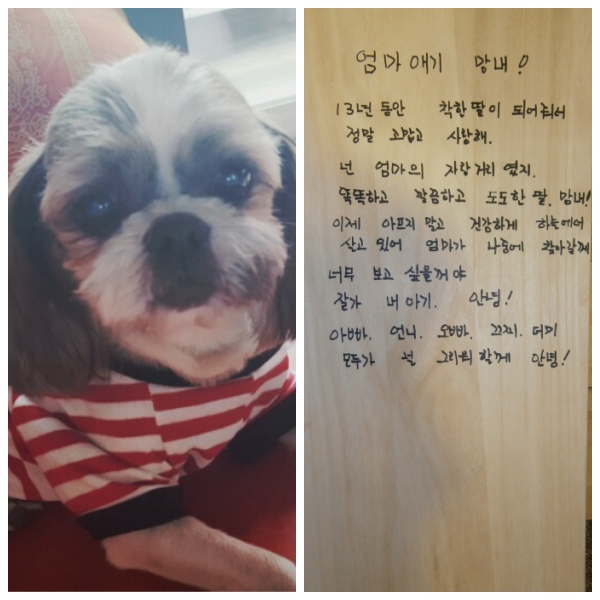 엄마 애기 망내!
13년 동안 착한 딸이 되어줘서
정말 고맙고 사랑해.
넌 엄마의 자랑거리 였지.
똑똑하고 깔끔하고 도도한 딸. 망내!
이제 아프지 말고 건강하게 하늘에서
살고 있어 엄마가 나중에 찾아갈께
너무 보고 싶을꺼야
잘가 내 아기. 안녕!
아빠. 언니. 오빠. 끄지. 더미
모두가 널 그리워 할께 안녕!